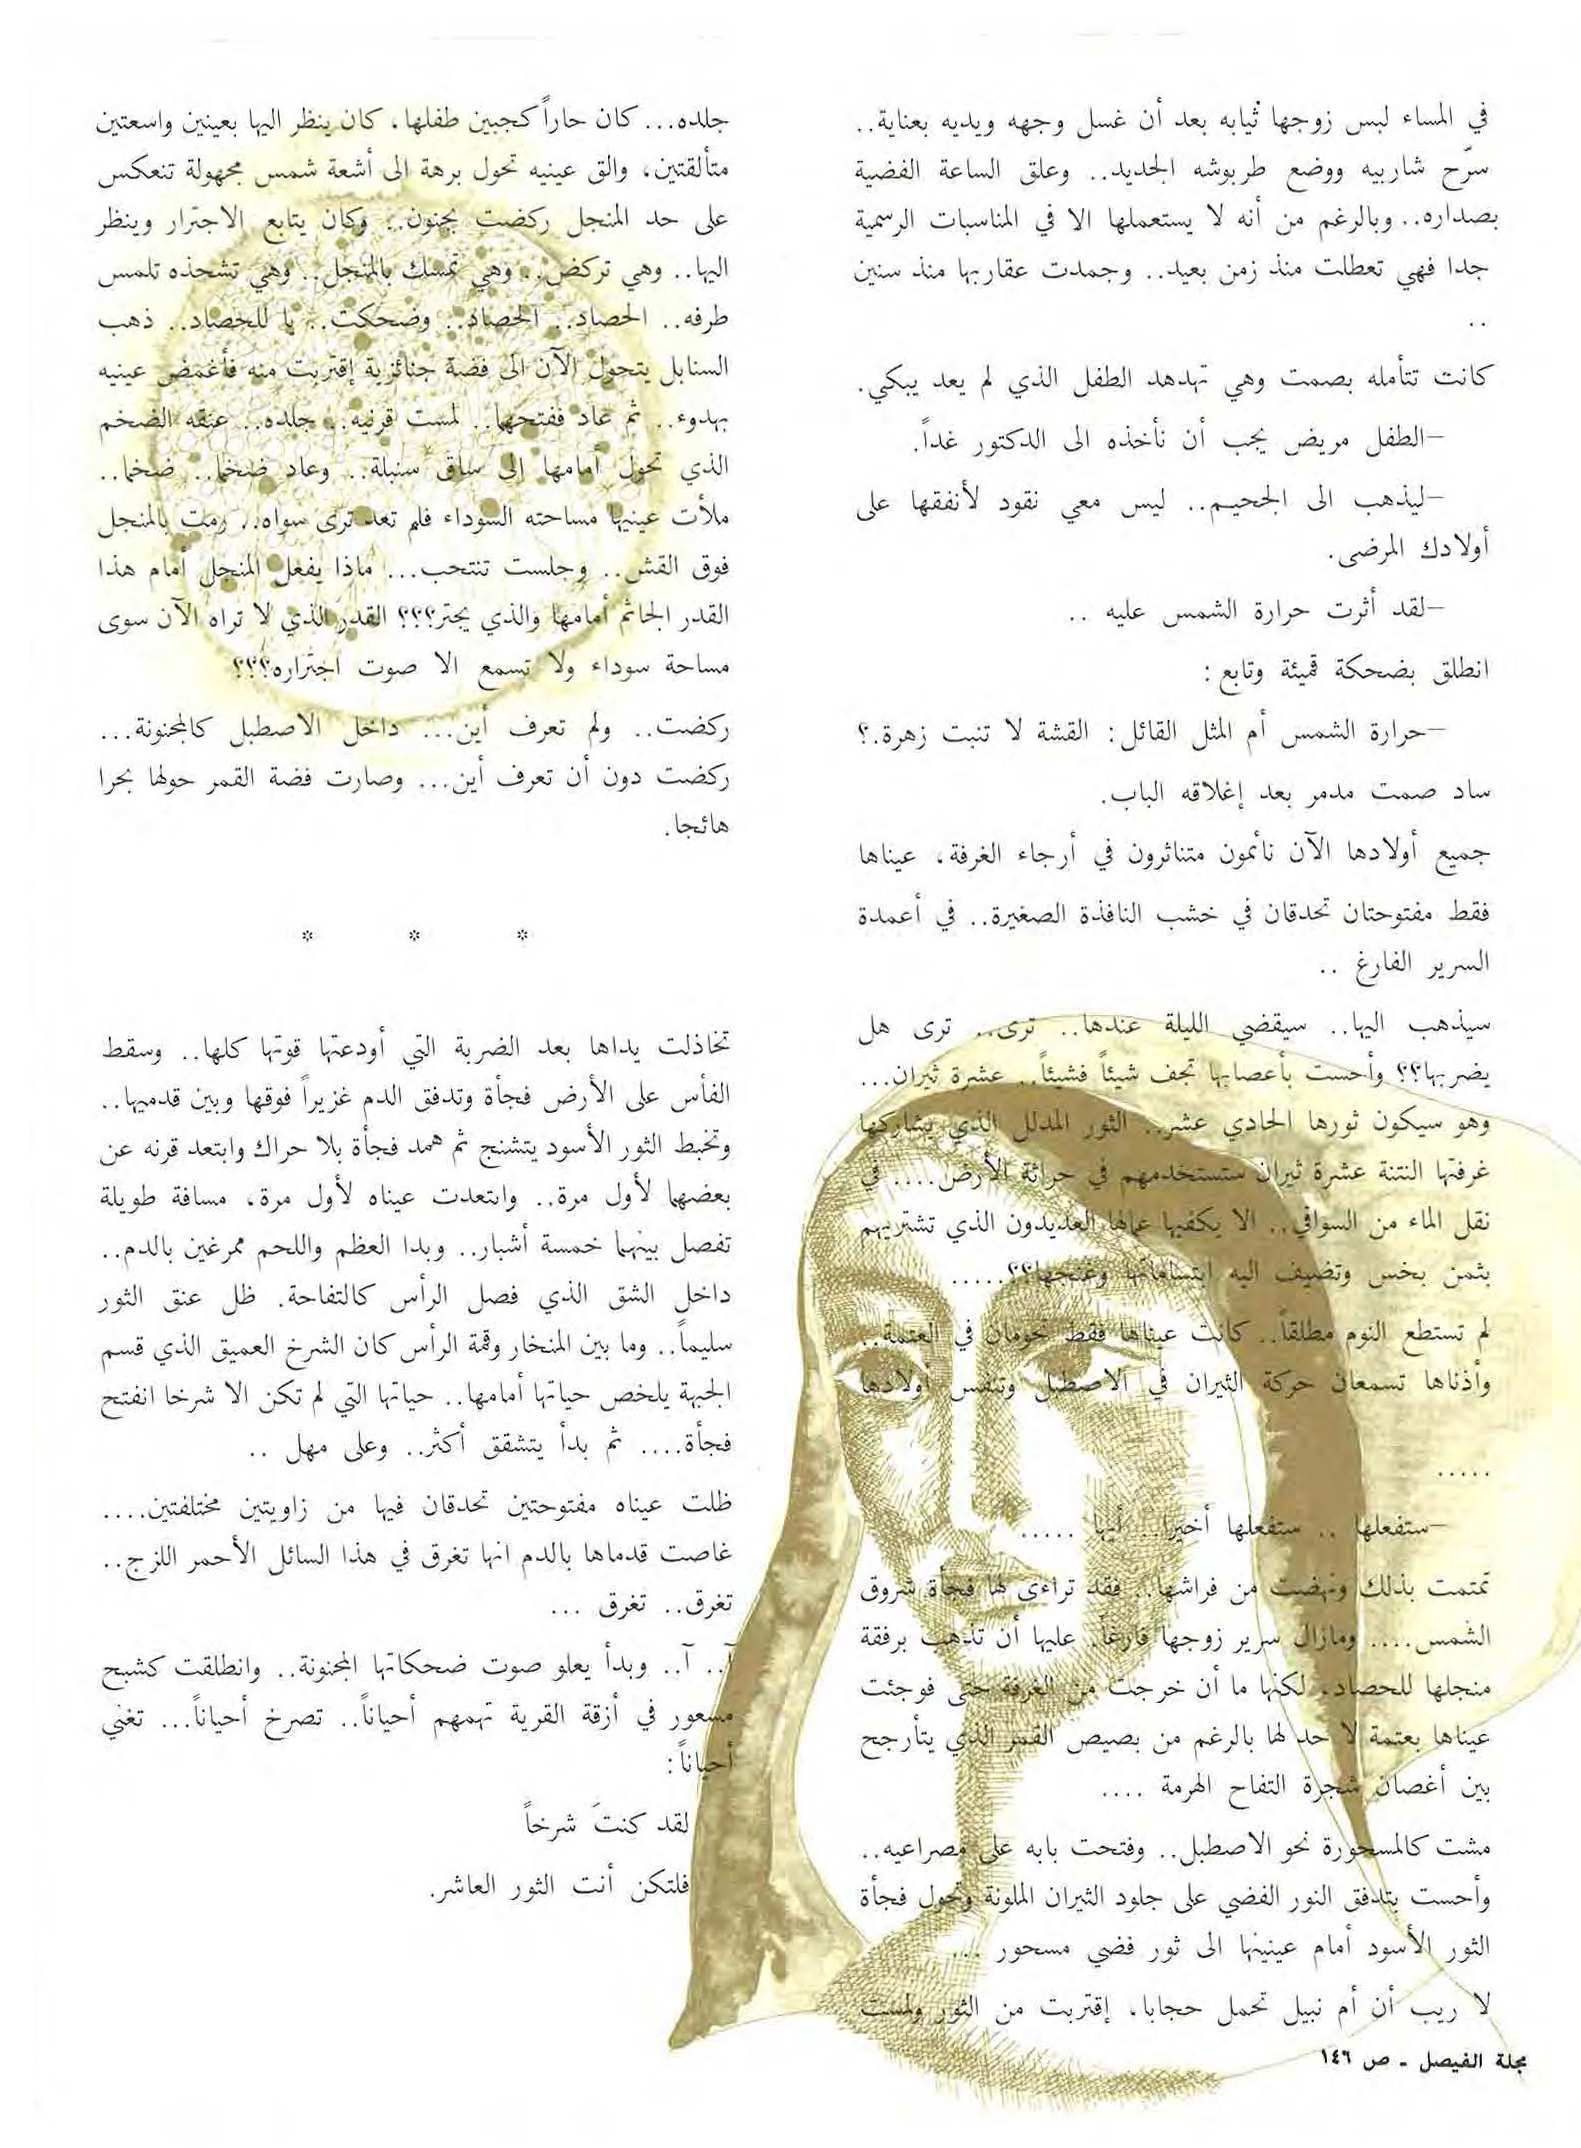 في المساء لبس زوجها ثيابه بعد أن غسل وجهه ويديه بعناية..
سرّح شاربيه ووضع طربوشه الجديد.. وعلق الساعة الفضية
بصداره.. وبالرغم من أنه لا يستعملها الا في المناسبات الرسمية
جدا فهي تعطلت منذ زمن بعيد.. وجمدت عقاربها منذ سنين
..
كانت تتأمله بصمت وهي تهدهد الطفل الذي لم يعد يبكي.
–الطفل مريض يجب أن نأخذه الى الدكتور غداً.
–ليذهب الى الجحيم.. ليس معي نقود لأنفقها على
أولادك المرضى.
–لقد أثرت حرارة الشمس عليه ..
انطلق بضحكة قميئة وتابع :
–حرارة الشمس أم المثل القائل : القشة لا تنبت زهرة.؟
ساد صمت مدمر بعد إغلاقه الباب.
جميع أولادها الآن نائمون متناثرون في أرجاء الغرفة، عيناها
فقط مفتوحتان تحدقان في خشب النافذة الصغيرة.. في أعمدة
السرير الفارغ ..
سيذهب اليها.. سيقضي الليلة عندها.. ترى.. ترى هل
يضربها؟؟ وأحست بأعصابها تجف شيئاً فشيئاً.. عشرة ثيران...
وهو سيكون ثورها الحادي عشر.. الثور المدلل الذي يشاركها
غرفتها النتنة عشرة ثيران ستستخدمهم في حراثة الأرض.... في
نقل الماء من السواقي.. الا يكفيها عمالها العديدون الذي تشتريهم
بثمن بخس وتضيف اليه ابتساماتها وغنجها؟؟.....
لم تستطع النوم مطلقاً.. كانت عيناها فقط تحومان في العتمة..
وأذناها تسمعان حركة الثيران في الاصطبل وتنفس أولادها
.....
–ستفعلها .. ستفعلها أخيرا.. أيها .....
تمتمت بذلك ونهضت من فراشها.. فقد تراءى لها فجأة شروق
الشمس.... ومازال سرير زوجها فارغاً. عليها أن تذهب برفقة
منجلها للحصاد. لكنها ما أن خرجت من الغرفة حتى فوجئت
عيناها بعتمة لا حد لها بالرغم من بصيص القمر الذي يتأرجح
بين أغصان شجرة التفاح الهرمة ....
مشت كالمسحورة نحو الاصطبل.. وفتحت بابه على مصراعيه..
وأحست بتدفق النور الفضي على جلود الثيران الملونة وتحول فجأة
الثور الأسود أمام عينيها الى ثور فضي مسحور ...
لا ريب أن أم نبيل تحمل حجابا، إقتربت من الثور ولمست
جلده... كان حاراً كجبين طفلها، كان ينظر اليها بعينين واسعتين
متألقتين، والق عينيه تحول برهة الى أشعة شمس مجهولة تنعكس
على حد المنجل ركضت بجنون.. وكان يتابع الاجترار وينظر
اليها.. وهي تركض.. وهي تمسك بالمنجل.. وهي تشحذه تلمس
طرفه.. الحصاد.. الحصاد.. وضحكت.. يا للحصاد.. ذهب
السنابل يتحول الآن الى فضة جنائزية إقتربت منه فأغمض عينيه
بهدوء.. ثم عاد ففتحهما.. لمست قرنيه.. جلده.. عنقه الضخم
الذي تحول أمامها إلى ساق سنبلة.. وعاد ضخما.. ضخما..
ملأت عينيها مساحته السوداء فلم تعد ترى سواه.. رمت بالمنجل
فوق القش.. وجلست تنتحب... ماذا يفعل المنجل أمام هذا
القدر الجاثم أمامها والذي يجتر؟؟؟ القدر الذي لا تراه الآن سوى
مساحة سوداء ولا تسمع الا صوت اجتراره؟؟؟
ركضت.. ولم تعرف أين... داخل الاصطبل كالمجنونة...
ركضت دون أن تعرف أين... وصارت فضة القمر حولها بحرا
هائجا.
* * *
تخاذلت يداها بعد الضربة التي أودعتها قوتها كلها.. وسقط
الفأس على الأرض فجأة وتدفق الدم غزيراً فوقها وبين قدميها..
وتخبط الثور الأسود يتشنج ثم همد فجأة بلا حراك وابتعد قرنه عن
بعضهما لأول مرة.. وابتعدت عيناه لأول مرة، مسافة طويلة
تفصل بينهما خمسة أشبار.. وبدا العظم واللحم ممرغين بالدم..
داخل الشق الذي فصل الرأس كالتفاحة. ظل عنق الثور
سليماً.. وما بين المنخار وقمة الرأس كان الشرخ العميق الذي قسم
الجبهة يلخص حياتها أمامها.. حياتها التي لم تكن الا شرخا انفتح
فجأة.... ثم بدأ يتشقق أكثر.. وعلى مهل ..
ظلت عيناه مفتوحتين تحدقان فيها من زاويتين مختلفتين....
غاصت قدماها بالدم انها تغرق في هذا السائل الأحمر اللزج..
تغرق.. تغرق ...
آ.. آ.. وبدأ يعلو صوت ضحكاتها المجنونة.. وانطلقت كشبح
مسعور في أزقة القرية تهمهم أحياناً.. تصرخ أحياناً... تغني
أحياناً:
لقد كنتَ شرخاً
فلتكن أنت الثور العاشر.
مجلة الفيصل - ص ١٤٦